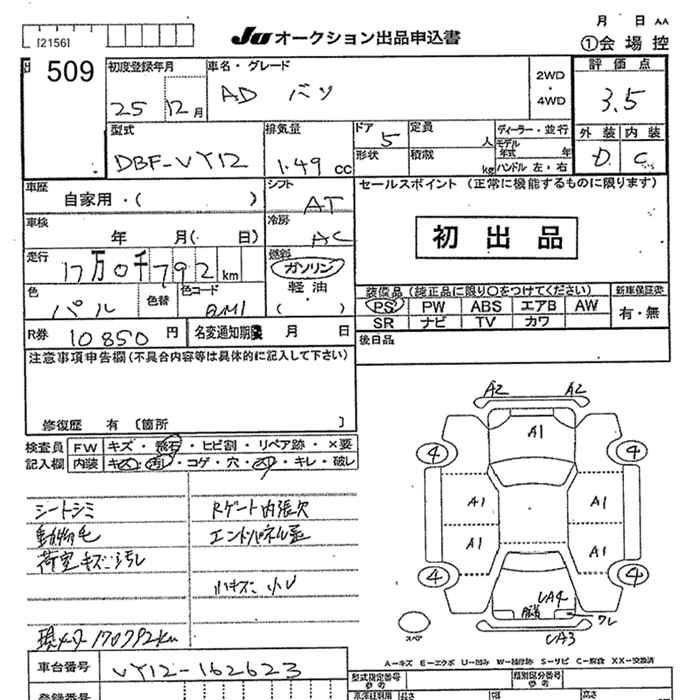 月 日 AA
[2156]
JU オークション出品申込書
①会場控
509
初度登録年月
25 12月
車名・グレード
AD バン
2WD
・
4WD
評価点
3.5
型式
DBF-VY12
排気量
1.49 cc
ドア
5
定員
人
ディーラー・並行
モデル年式 年
外装 内装
D C
形状
積載
kg
ハンドル 左・右
車歴
自家用・( )
シフト
AT
セールスポイント (正常に機能するものに限ります)
初出品
車検
年 月( 日)
冷房
AC
走行
17万0千792km
燃料
ガソリン
軽油
( )
色
パール
色替
色コード
装備品 (純正品に限り○をつけてください)
新車保証書
PS PW ABS エアB AW
有・無
SR ナビ TV カワ
R券 10850 円
名変通知期限 月 日
後日品
注意事項申告欄(不具合内容等は具体的に記入して下さい)
修復歴 有 〔箇所 〕
検査員
記入欄
FW キズ・飛石・ヒビ割・リペア跡・×要
内装 キズ・汚れ・コゲ・穴・スレ・キレ・破レ
シートシミ
動物毛
荷室キズ・汚れ
現メータ170792km
Rゲート内張欠
エンドパネル歪
小キズ・小凹
A2 A2
A1
4 4
A1 A1
A1 A1
4 4
UA4
ワレ
UA3
スペア
A－キズ E－エクボ U－凹み W－補修跡 S－サビ C－腐食 XX－交換済
車台番号
VY12-162623
型式指定番号
参考
類別区分番号
参考
登録番号
長さ
幅
高さ